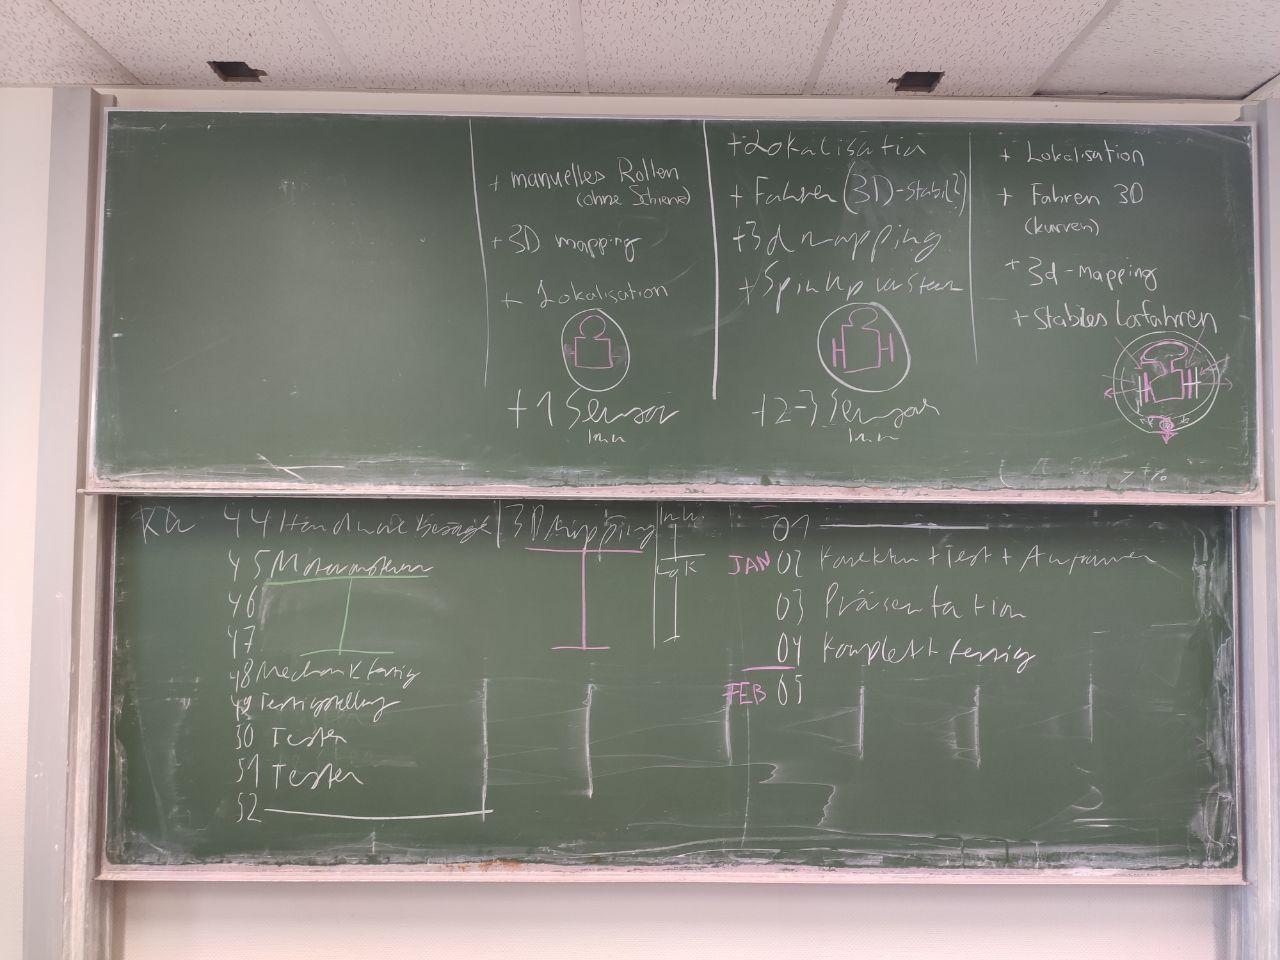 + manuelles Rollen
(ohne Schiene)
+ 3D mapping
+ Lokalisation
+1 Sensor
+ Lokalisation
+ Fahren (3D-stabil?)
+3d mapping
+ Spin Up
+2-3 Sensor
+ Lokalisation
+ Fahren 3D
(kurven)
+ 3d-Mapping
+ Stabiles Losfahren
KW 44 Hardware | 3D Mapping
45
46
47
48 Mechanik fertig
49 Fertigstellung
50 Testen
51 Testen
52
01
JAN 02 Korrektur + Test + Anpassen
03 Präsentation
04 Komplett fertig
FEB 05